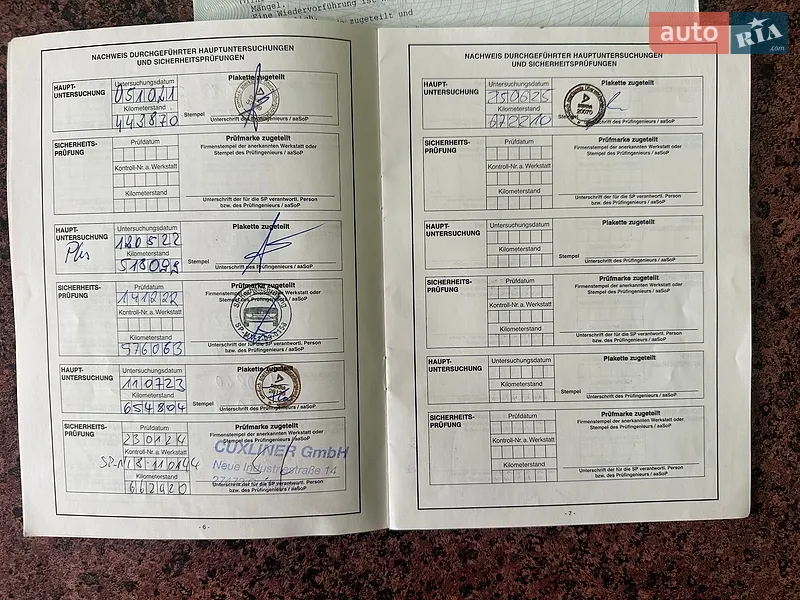 Mängel.
Eine Niedervorführung ist
zugeteilt und
auto RIA .com
NACHWEIS DURCHGEFÜHRTER HAUPTUNTERSUCHUNGEN
UND SICHERHEITSPRÜFUNGEN
HAUPT-
UNTERSUCHUNG
Untersuchungsdatum
051021
Kilometerstand
443870
Stempel
Plakette zugeteilt
Unterschrift des Prüfingenieurs / aaSoP
SICHERHEITS-
PRÜFUNG
Prüfdatum
Kontroll-Nr. a. Werkstatt
Kilometerstand
Prüfmarke zugeteilt
Firmenstempel der anerkannten Werkstatt oder
Stempel des Prüfingenieurs / aaSoP
Unterschrift der für die SP verantwortl. Person
bzw. des Prüfingenieurs / aaSoP
HAUPT-
UNTERSUCHUNG
Untersuchungsdatum
120522
Kilometerstand
Stempel
Plakette zugeteilt
Unterschrift des Prüfingenieurs / aaSoP
SICHERHEITS-
PRÜFUNG
Prüfdatum
141222
Kontroll-Nr. a. Werkstatt
Kilometerstand
576063
Prüfmarke zugeteilt
Firmenstempel der anerkannten Werkstatt oder
Stempel des Prüfingenieurs / aaSoP
Unterschrift der für die SP verantwortl. Person
bzw. des Prüfingenieurs / aaSoP
HAUPT-
UNTERSUCHUNG
Untersuchungsdatum
110723
Kilometerstand
654804
Stempel
Plakette zugeteilt
Unterschrift des Prüfingenieurs / aaSoP
SICHERHEITS-
PRÜFUNG
Prüfdatum
230124
Kontroll-Nr. a. Werkstatt
Kilometerstand
662420
Prüfmarke zugeteilt
Firmenstempel der anerkannten Werkstatt oder
Stempel des Prüfingenieurs / aaSoP
CUXLINER GmbH
Neue Industriestraße 14
Unterschrift der für die SP verantwortl. Person
bzw. des Prüfingenieurs / aaSoP
- 6 -
NACHWEIS DURCHGEFÜHRTER HAUPTUNTERSUCHUNGEN
UND SICHERHEITSPRÜFUNGEN
HAUPT-
UNTERSUCHUNG
Untersuchungsdatum
250625
Kilometerstand
672210
Plakette zugeteilt
Unterschrift des Prüfingenieurs / aaSoP
SICHERHEITS-
PRÜFUNG
Prüfdatum
Kontroll-Nr. a. Werkstatt
Kilometerstand
Prüfmarke zugeteilt
Firmenstempel der anerkannten Werkstatt oder
Stempel des Prüfingenieurs / aaSoP
Unterschrift der für die SP verantwortl. Person
bzw. des Prüfingenieurs / aaSoP
HAUPT-
UNTERSUCHUNG
Untersuchungsdatum
Kilometerstand
Stempel
Plakette zugeteilt
Unterschrift des Prüfingenieurs / aaSoP
SICHERHEITS-
PRÜFUNG
Prüfdatum
Kontroll-Nr. a. Werkstatt
Kilometerstand
Prüfmarke zugeteilt
Firmenstempel der anerkannten Werkstatt oder
Stempel des Prüfingenieurs / aaSoP
Unterschrift der für die SP verantwortl. Person
bzw. des Prüfingenieurs / aaSoP
HAUPT-
UNTERSUCHUNG
Untersuchungsdatum
Kilometerstand
Stempel
Plakette zugeteilt
Unterschrift des Prüfingenieurs / aaSoP
SICHERHEITS-
PRÜFUNG
Prüfdatum
Kontroll-Nr. a. Werkstatt
Kilometerstand
Prüfmarke zugeteilt
Firmenstempel der anerkannten Werkstatt oder
Stempel des Prüfingenieurs / aaSoP
Unterschrift der für die SP verantwortl. Person
bzw. des Prüfingenieurs / aaSoP
- 7 -